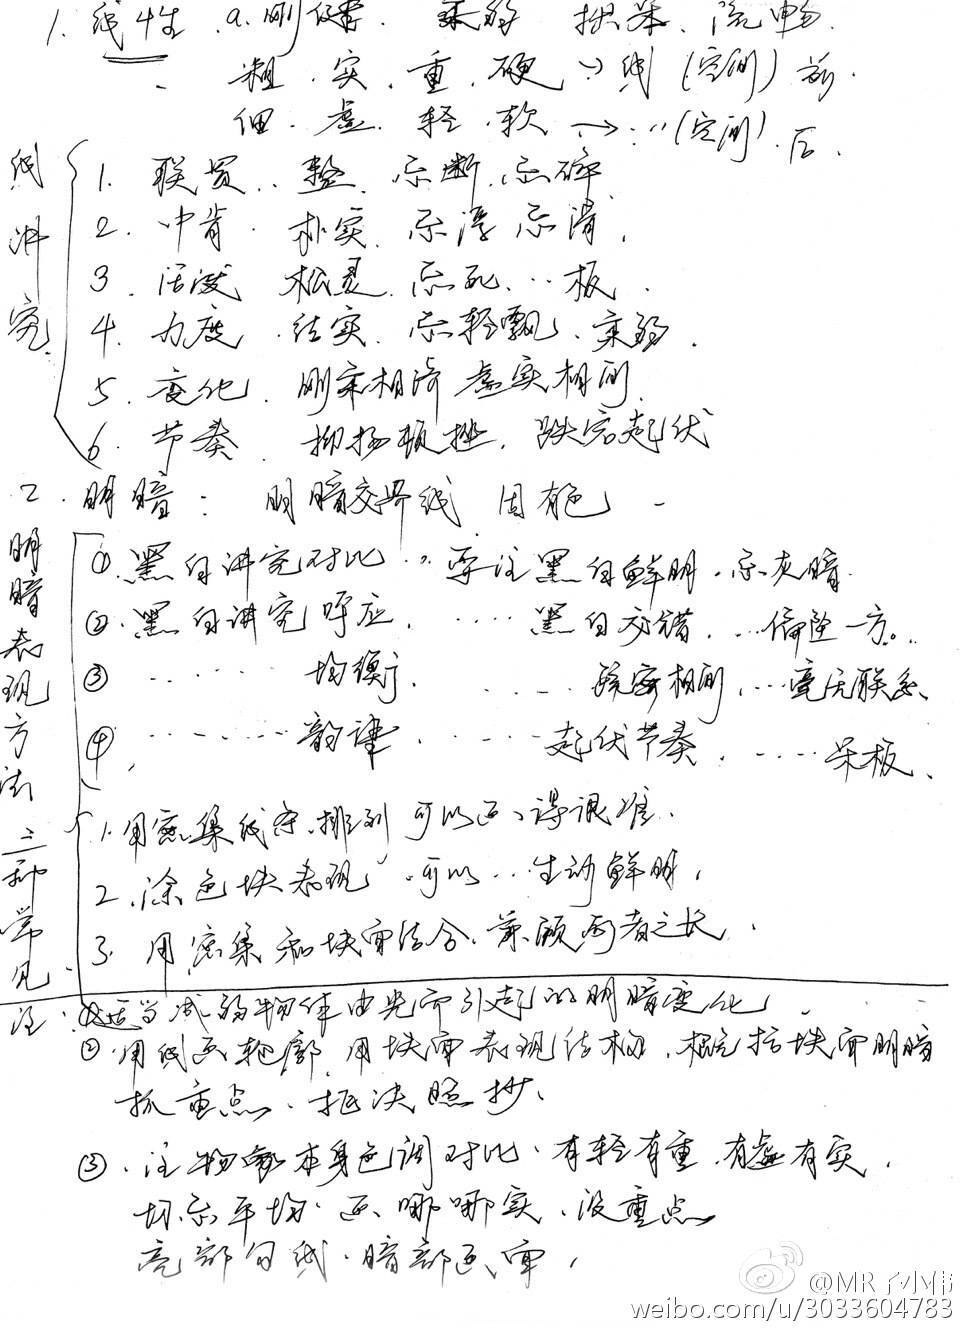 1. 线性 a.刚健 柔弱 拙笨 流畅.
粗.实.重.硬 → 线(空间)前.
细.虚.轻.软 → ..(空间).后.
线
讲
究
1. 联贯.. 整. 忌断.忌碎
2. 中肯. 朴实. 忌浮忌滑.
3. 活泼 松灵. 忌死...板.
4. 力度. 结实. 忌轻飘.柔弱.
5. 变化. 刚柔相济 虚实相间.
6. 节奏. 抑扬顿挫. 跌宕起伏
2. 明暗: 明暗交界线 固有色
明暗表现方法 三种常见.
①.黑白讲究对比.. 要注黑白鲜明.忌灰暗.
②.黑白讲究呼应. .... 黑白交错. ...偏坠一方。
③ ...... 均衡. ...... 疏密相间. ...毫无联系.
④. ....... 韵律. ...... 起伏节奏. ..... 呆板.
1.用密集线条.排列 可以画.得很准.
2.涂色块表现.可以...生动鲜明.
3. 用密集和块面结合.兼顾两者之长.
注: ①适当减弱物体由光而引起的明暗变化.
②.用线画轮廓.用块面表现结构.概括块面明暗
抓重点.拒决照抄.
③.注物象本身色调对比.有轻有重.有虚有实.
切忌平均.画哪哪实.没重点
亮部勾线.暗部画面.
@MR子小伟
weibo.com/u/3033604783